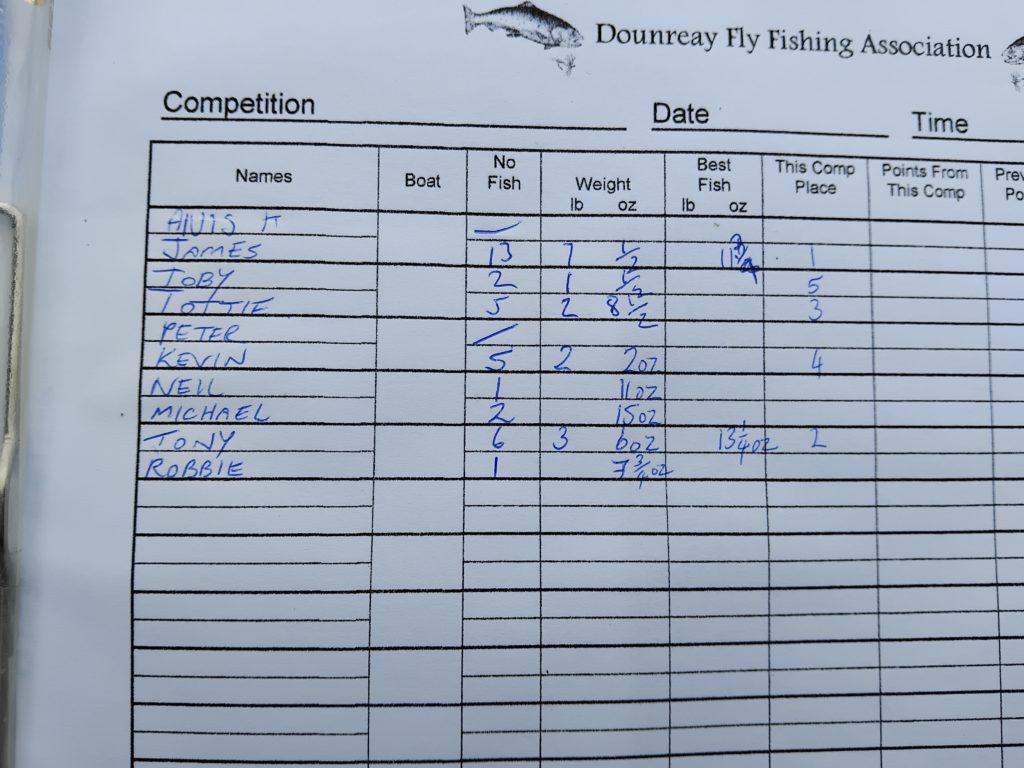 Dounreay Fly Fishing Association
Competition Date Time
Names Boat No Fish Weight lb oz Best Fish lb oz This Comp Place Points From This Comp Prev Po
H
JAMES 13 7 1/2 1
TOBY 2 1 1/2 5
TOTTIE 5 2 8 1/2 3
PETER
KEVIN 5 2 2oz 4
NEIL 1 11oz
MICHAEL 2 15oz
TONY 6 3 6oz 13 1/4oz 2
ROBBIE 1 7 3/4oz